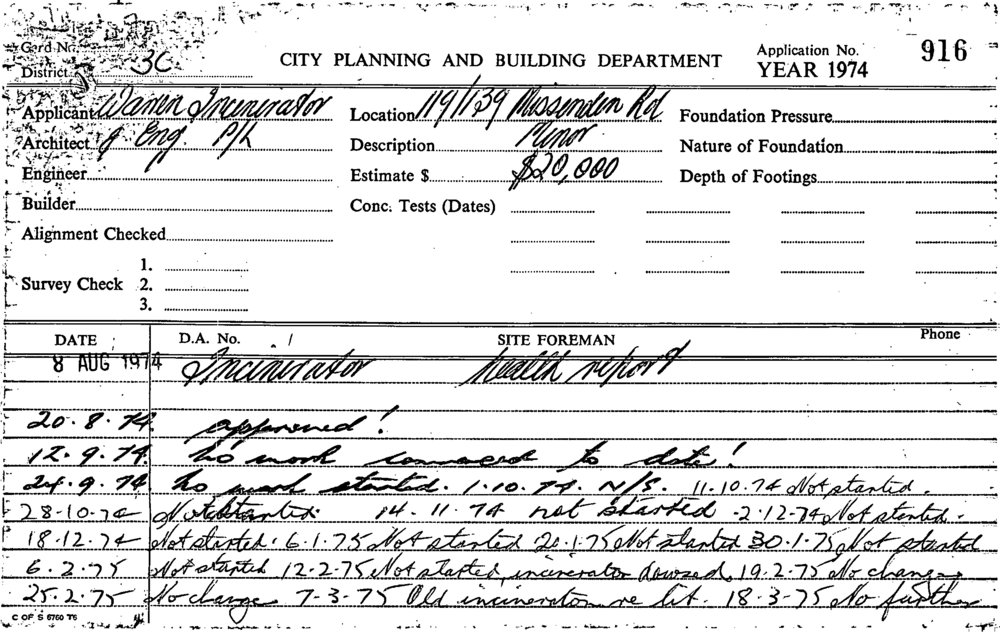 Card No.
District 3C
CITY PLANNING AND BUILDING DEPARTMENT
Application No. 916
YEAR 1974
Applicant Warren Incinerator
Location 119/139 Missenden Rd
Foundation Pressure
Architect & Eng. P/L
Description Minor
Nature of Foundation
Engineer
Estimate $ $20,000
Depth of Footings
Builder
Conc. Tests (Dates)
Alignment Checked
Survey Check
1.
2.
3.
DATE D.A. No. / SITE FOREMAN Phone
8 AUG 1974 Incinerator health report
20.8.74 approved!
12.9.74. No work commenced to date!
24.9.74 No work started. 1.10.74. N/S. 11.10.74 Not started.
28-10-74 Not started. 14.11.74 not started - 2.12.74 Not started.
18.12.74 Not started. 6.1.75 Not started 20.1.75 Not started 30.1.75 Not started
6.2.75 Not started 12.2.75 Not started, incinerator dowsed. 19.2.75 No change
25.2.75 No change 7-3-75 Old incinerator re lit. 18-3-75 No further
C OF S 6760 T6